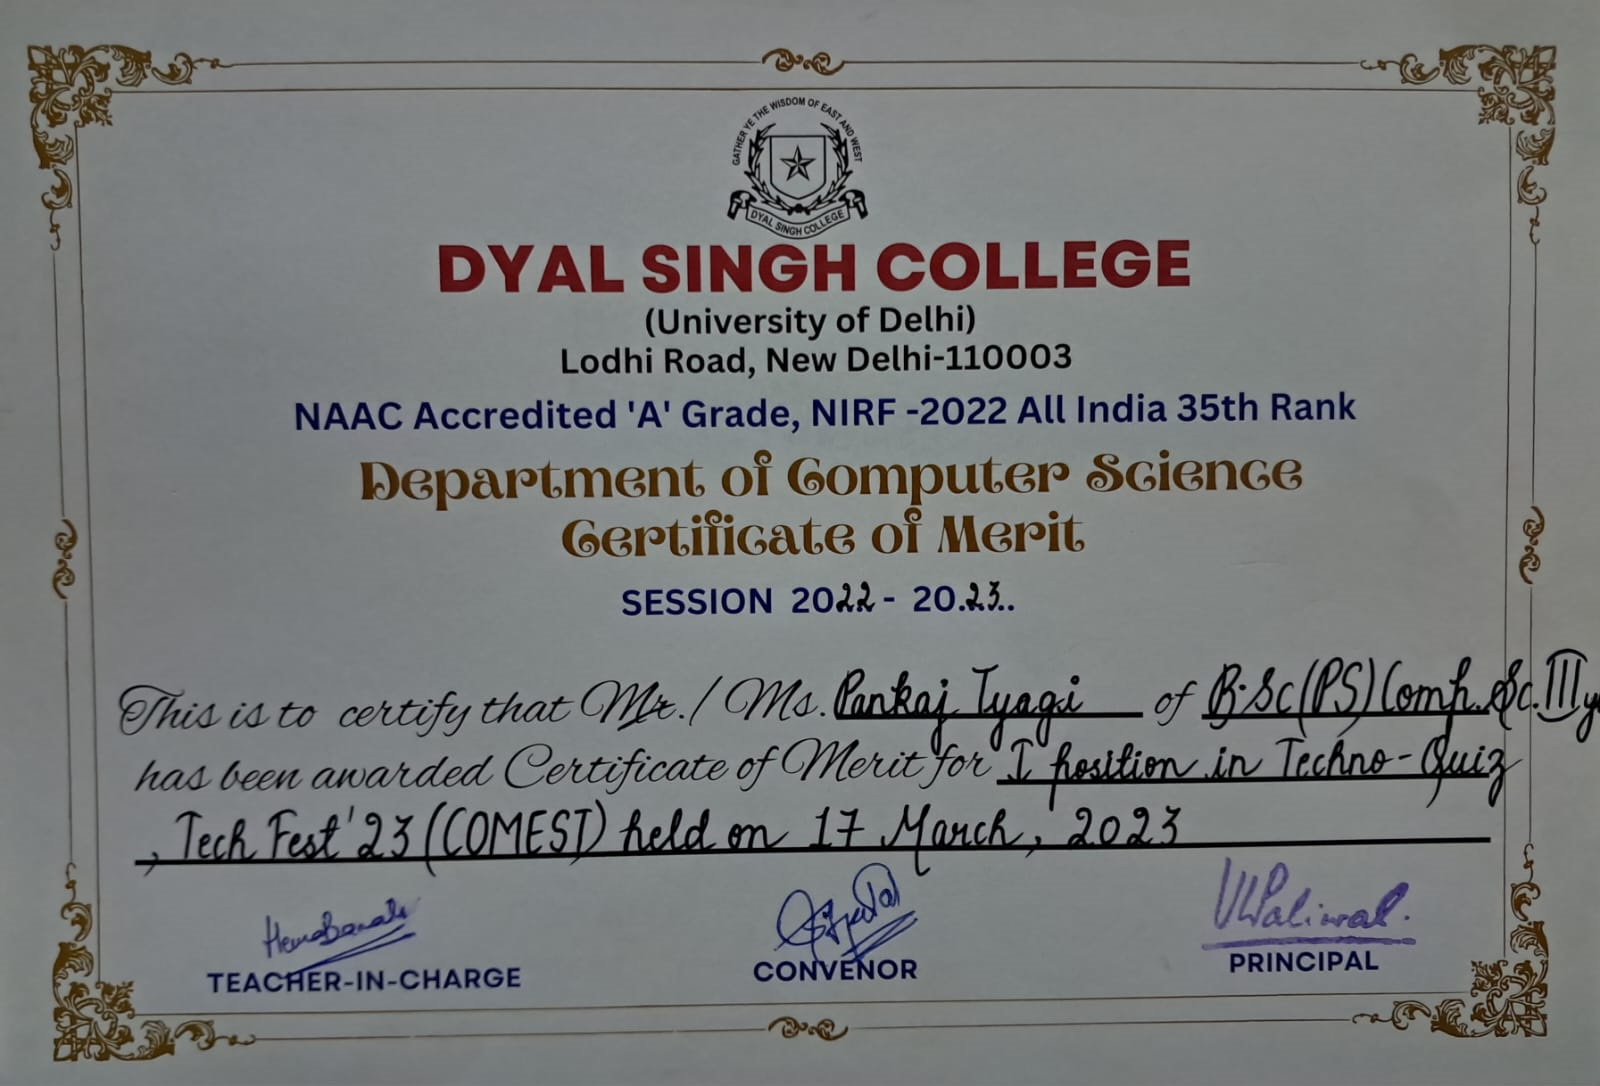 GATHER YE THE WISDOM OF EAST AND WEST
DYAL SINGH COLLEGE
DYAL SINGH COLLEGE
(University of Delhi)
Lodhi Road, New Delhi-110003
NAAC Accredited 'A' Grade, NIRF -2022 All India 35th Rank
Department of Computer Science
Certificate of Merit
SESSION 2022 - 20.23..
This is to certify that Mr. / Ms. Pankaj Tyagi of B.Sc(PS) Comp. Sc. III
has been awarded Certificate of Merit for I position in Techno-Quiz
, Tech Fest'23 (COMEST) held on 17 March, 2023
VKPaliwal.
TEACHER-IN-CHARGE CONVENOR PRINCIPAL